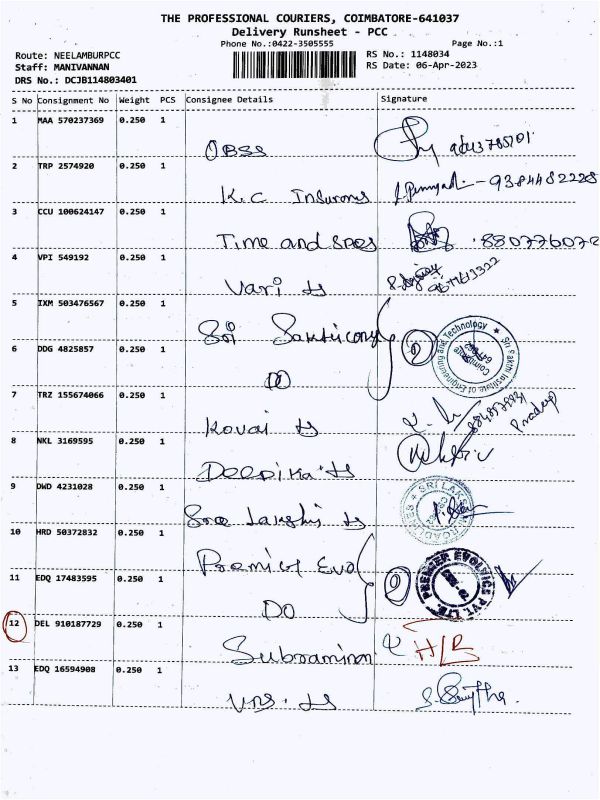 THE PROFESSIONAL COURIERS, COIMBATORE-641037
Delivery Runsheet - PCC
Phone No.:0422-3505555 Page No.:1
Route: NEELAMBURPCC RS No.: 1148034
Staff: MANIVANNAN RS Date: 06-Apr-2023
DRS No.: DCJB114803401
S No Consignment No Weight PCS Consignee Details Signature
1 MAA 570237369 0.250 1
OBSS
2 TRP 2574920 0.250 1
K.C Insurons 9384482228
3 CCU 100624147 0.250 1
Time and Spes
4 VPI 549192 0.250 1
Vari ts
5 IXM 503476567 0.250 1
Sri
6 DDG 4825857 0.250 1 2 Sri Sakthi Institute of Engineering and Technology
DO
7 TRZ 155674066 0.250 1
Kovai ts Pradeep
8 NKL 3169595 0.250 1
Deepika ts
9 DWD 4231028 0.250 1
Sree Lakshi ts
10 HRD 50372832 0.250 1
Premier Evo
11 EDQ 17483595 0.250 1 2 PREMIER EVOLVICS PVT. LTD.
DO
12 DEL 910187729 0.250 1
H/R
13 EDQ 16594908 0.250 1